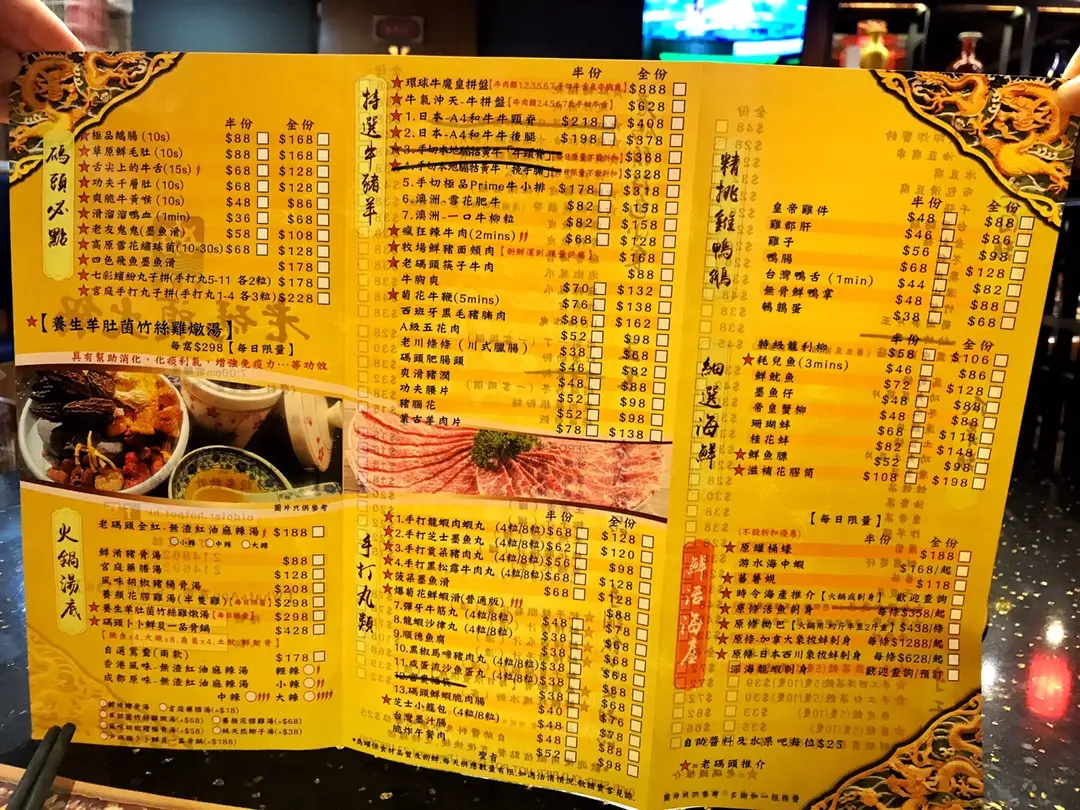 碼頭必點
半份 全份
★極品鵝腸(10s) $88 $168
★草原鮮毛肚(10s) $88 $168
★舌尖上的牛舌(15s) $68 $128
★功夫千層肚(10s) $68 $128
★爽脆牛黃喉(10s) $48 $86
★滑溜溜鴨血(1min) $36 $68
★老友鬼鬼(墨魚滑) $58 $108
★高原雪花繡球菌(10-30s) $68 $128
★四色飛魚墨魚滑 $178
★七彩繽紛丸子拼(手打丸5-11 各2粒) $178
★宮庭手打丸子拼(手打丸1-4 各3粒) $228
★【養生羊肚菌竹絲雞燉湯】
每窩$298【每日限量】
具有幫助消化,化痰利氣,增強免疫力…等功效
圖片只供參考
火鍋湯底
老碼頭全紅-無渣紅油麻辣湯 $188
小辣 中辣 大辣
鮮淆豬骨湯 $88
宮庭藥膳湯 $128
風味胡椒豬桶骨湯 $208
養顏花膠雞湯(半隻雞)【每日限量】 $298
★養生羊肚菌竹絲雞燉湯【每日限量】 $298
★碼頭卜卜鮮貝一品骨鍋 $428
自選鴛鴦(兩款) $178
香港風味-無渣紅油麻辣湯 輕辣
成都原味-無渣紅油麻辣湯 小辣
中辣 大辣
特選牛豬羊
半份 全份
★環球牛魔皇拼盤 $888
★牛氣沖天-牛拼盤 $628
★1.日本-A4和牛牛頸脊 $218 $408
★2.日本-A4和牛牛後腿 $198 $378
$368
$328
5.手切極品Prime牛小排 $178 $318
6.澳洲-雪花肥牛 $82 $158
7.澳洲-一口牛柳粒 $82 $158
★瘋狂辣牛肉(2mins) $68 $128
★牧場鮮豬面頰肉【新鮮運到 限量供應】 $168
★老碼頭筷子牛肉 $88
牛胸爽 $70 $132
★菊花牛鞭(5mins) $76 $138
西班牙黑毛豬腩肉 $86 $162
A級五花肉 $52 $98
老川條條(川式臘腸) $38 $68
碼頭肥腸頭 $46 $82
爽滑豬潤 $48 $88
功夫腰片 $52 $98
豬腦花 $52 $98
蒙古羊肉片 $78 $138
手打丸類
半份 全份
★1.手打龍蝦肉蝦丸 (4粒/8粒) $68 $128
★2.手打芝士墨魚丸 (4粒/8粒) $62 $120
★3.手打貢菜豬肉丸 (4粒/8粒) $56 $98
★4.手打黑松露牛肉丸 (4粒/8粒) $68 $128
★菠菜墨魚滑 $128
★爆菊花鮮蝦滑(普通版) $128
7.彈牙牛筋丸 (4粒/8粒) $48 $88
8.龍蝦沙律丸 (4粒/8粒) $38 $68
9.順德魚腐 $38 $68
10.黑椒馬啼豬肉丸 (4粒/8粒) $38 $68
11.咸蛋流沙魚蛋 (4粒/8粒) $38 $68
13.碼頭鮮蝦脆肉腸 $40 $78
★芝士小龍包(4粒/8粒) $48 $88
台灣墨汁腸 $48 $88
脆炸午餐肉 $52 $98
精挑雞鴨鵝
半份 全份
皇帝雞件 $48 $88
雞郡肝 $46 $86
雞子 $56 $98
鴨腸 $68 $128
台灣鴨舌(1min) $44 $82
無骨鮮鴨掌 $48 $88
鵪鶉蛋 $38 $68
細選海鮮
半份 全份
特級龍利柳 $58 $106
★耗兒魚(3mins) $46 $86
鮮魷魚 $72 $128
墨魚仔 $48 $88
帝皇蟹柳 $48 $88
珊瑚蚌 $68 $118
桂花蚌 $82 $148
★鮮魚膘 $52 $98
★滋補花膠筒 $108 $198
【每日限量】
(不設折扣優惠)
半份 全份
鮮活海產
★原罐桶蠔 $188
游水海中蝦 $168/起
★蕃薯蜆 $118
★時令海產推介【火鍋或刺身】 歡迎查詢
★原條活魚刺身 每條$358/起
$438/條
★原條-加拿大象拔蚌刺身 每條$1288/起
★原條-日本西川象拔蚌刺身 每條$628/起
深海龍蝦刺身 歡迎查詢/預訂
自助醬料及水果吧每位$25
★=老碼頭推介
圖片只供參考 多謝加一服務費